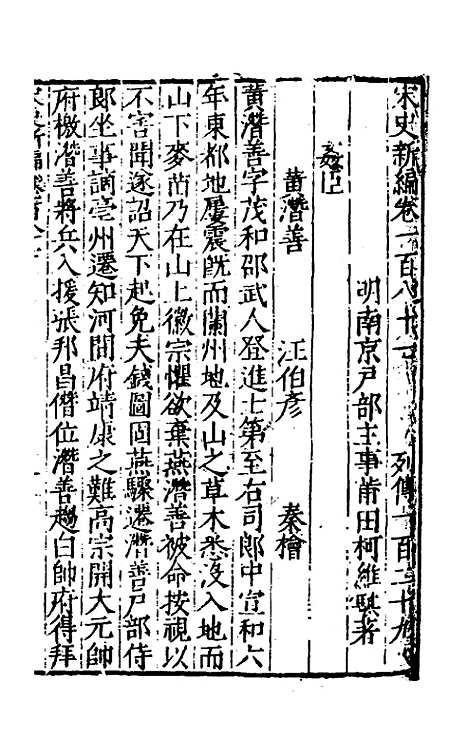 宋史新編卷一百八十六 列傳一百二十九
明南京戸部主事莆田柯維騏著
姦臣
黄潛善 汪伯彦 秦檜
黄潛善字茂和邵武人登進士第至右司郎中宣和六
年東都地屢震旣而蘭州地及山之草木悉没入地而
山下麥苗乃在山上徽宗懼欲棄燕潛善被命按視以
不害聞遂詔天下起免夫錢圖固燕驟遷潛善戸部侍
郎坐事謫亳州遷知河間府靖康之難高宗開大元帥
府檄潛善將兵入援張邦昌僭位潛善趨白帥府得拜